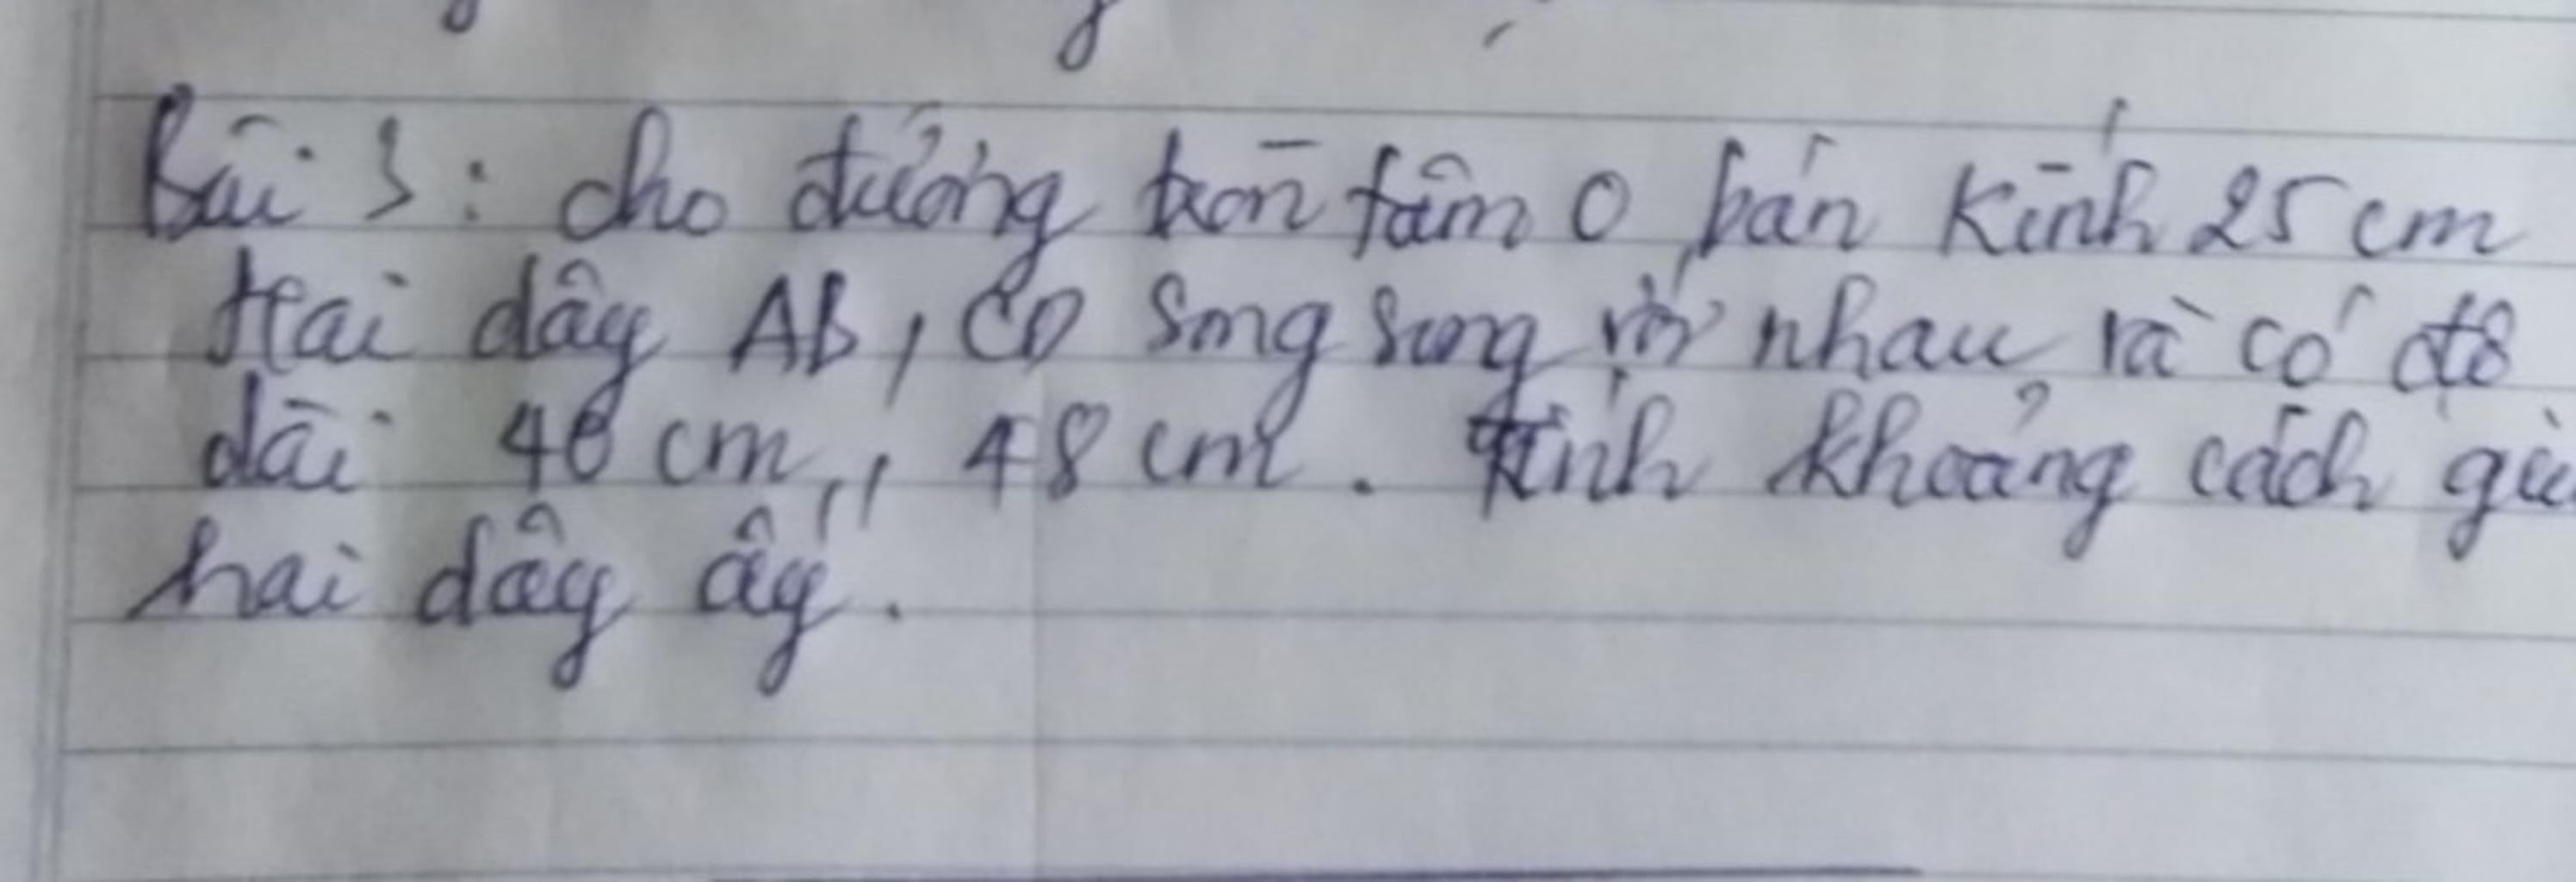 Bài 3: cho đường tròn tâm O bán kính 25 cm
Hai dây AB, CD song song với nhau và có độ
dài 40 cm, 48 cm. Tính khoảng cách giữ
hai dây ấy.